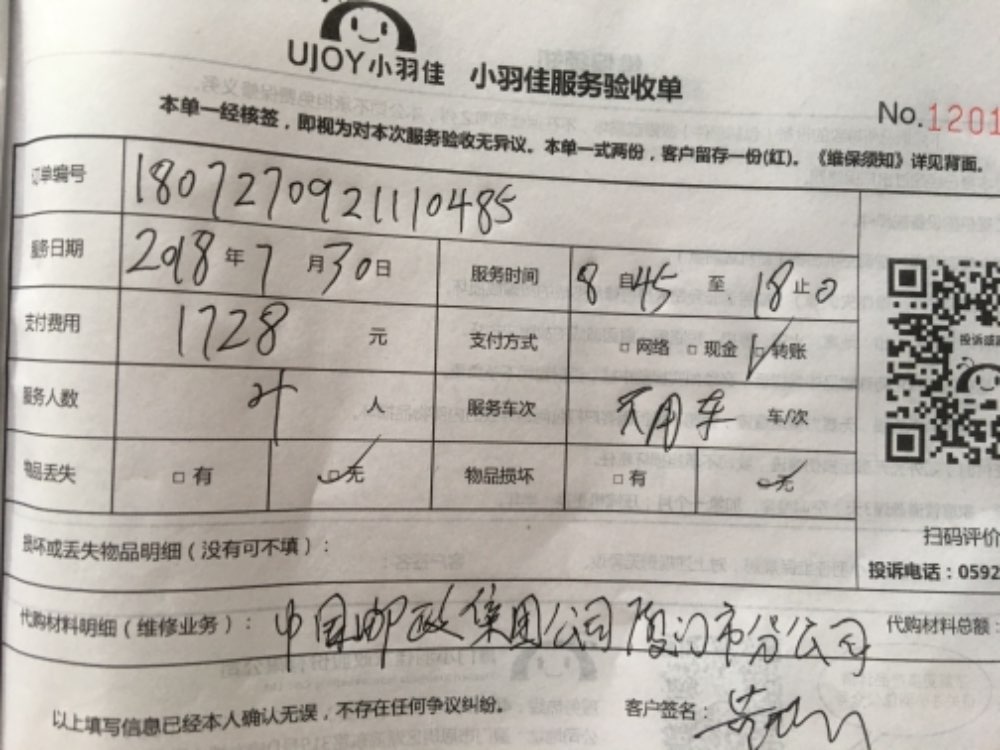 UJOY小羽佳 小羽佳服务验收单
No.1201
本单一经核签，即视为对本次服务验收无异议。本单一式两份，客户留存一份(红)。《维保须知》详见背面。
订单编号 1807270921110485
服务日期 2018年7月30日 服务时间 8自45至18止0
支付费用 1728元 支付方式 □网络 □现金 □转账
服务人数 4人 服务车次 不用车 车/次
物品丢失 □有 □无 物品损坏 □有 □无
损坏或丢失物品明细（没有可不填）：
扫码评价
投诉电话：0592
代购材料明细（维修业务）：中国邮政集团公司厦门市分公司 代购材料总额：
以上填写信息已经本人确认无误，不存在任何争议纠纷。 客户签名：